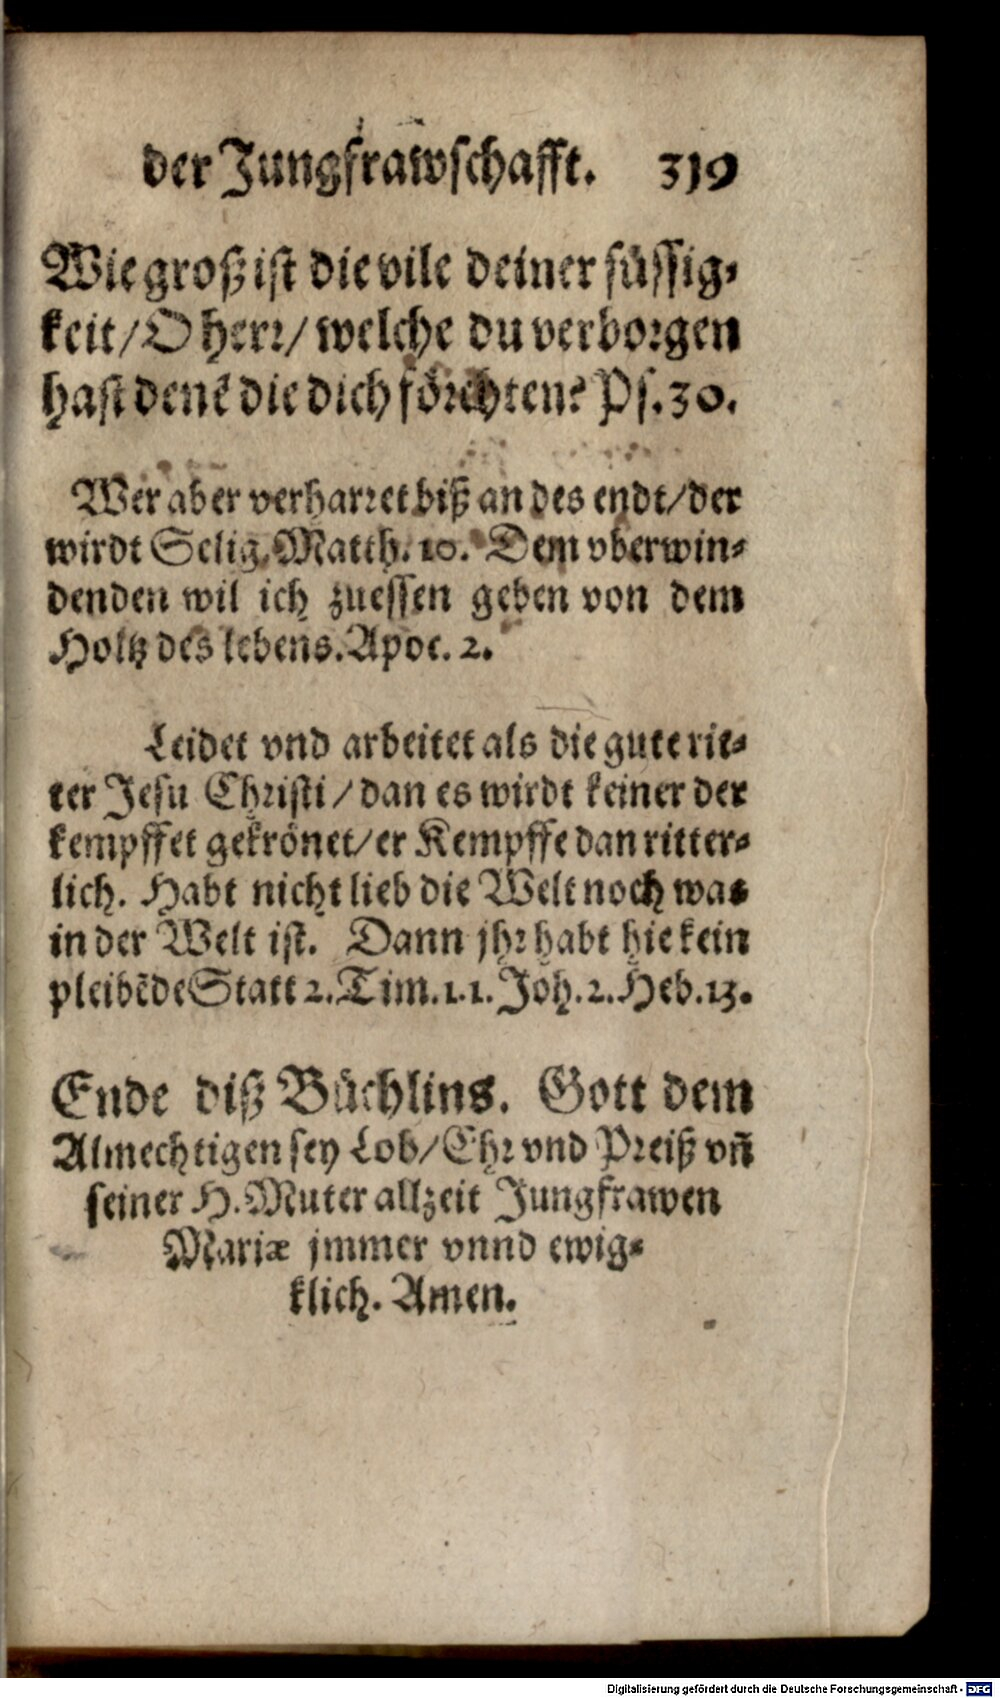 der Jungfrawschafft. 319
Wie groß ist die vile deiner süssig-
keit/ O herr/ welche du verborgen
hast denẽ die dich förchten? Ps. 30.
Wer aber verharret biß an des endt/ der
wirdt Selig. Matth. 10. Dem vberwin-
denden wil ich zuessen geben von dem
Holtz des lebens. Apoc. 2.
Leidet vnd arbeitet als die gute rit-
ter Jesu Christi/ dan es wirdt keiner der
kempffet gekrönet/ er Kempffe dan ritter-
lich. Habt nicht lieb die Welt noch was
in der Welt ist. Dann jhr habt hie kein
pleibẽde Statt 2. Tim. 1. 1. Joh. 2. Heb. 13.
Ende diß Büchlins. Gott dem
Almechtigen sey Lob/ Ehr vnd Preiß vñ
seiner H. Muter allzeit Jungfrawen
Mariæ jmmer vnnd ewig-
klich. Amen.
Digitalisierung gefördert durch die Deutsche Forschungsgemeinschaft - DFG